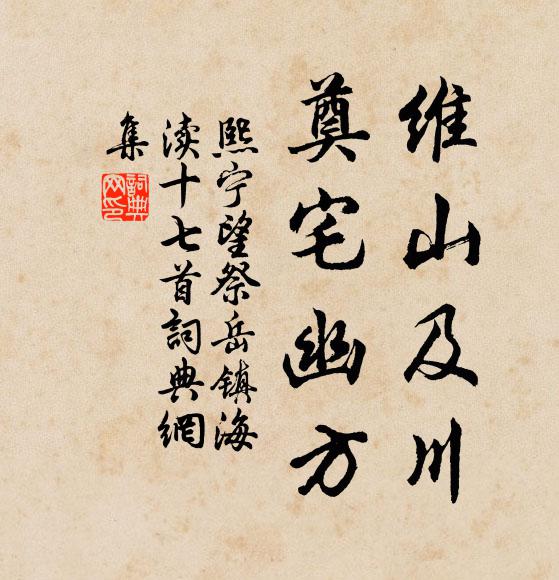 维山及川
奠宅幽方
熙宁望祭岳镇海
渎十七首詞典網
集
詞典
网印